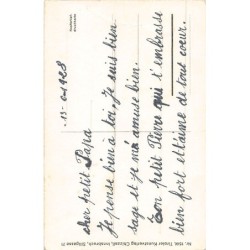 13 - 1928
cher petit Papa
Je pense bien à toi. Je suis bien
sage et je m'a amuse bien.
Ton petit Pierre qui t'embrasse
bien fort et t'aime de tout coeur.
Tiroler Kunstverlag Chizzali, Innsbruck